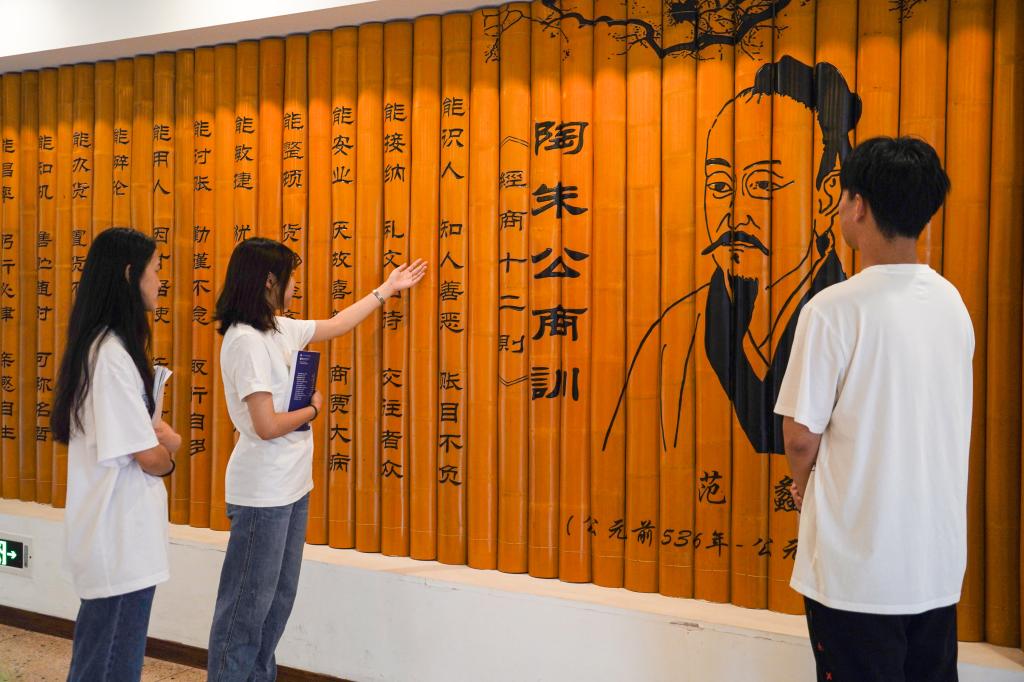 陶朱公商訓
《經商十二則》
能识人 知人善恶 账目不负
能接纳 礼文 待 交往者众
能安业 厌故喜 商贾大病
能整顿 货
能敏捷 犹
能讨账 勤谨不怠 取行自多
能用人 因
能辩论
能办货 置货
能知机 售贮随时 可称名哲
率 行必律 感自生
范蠡
(公元前536年-公元